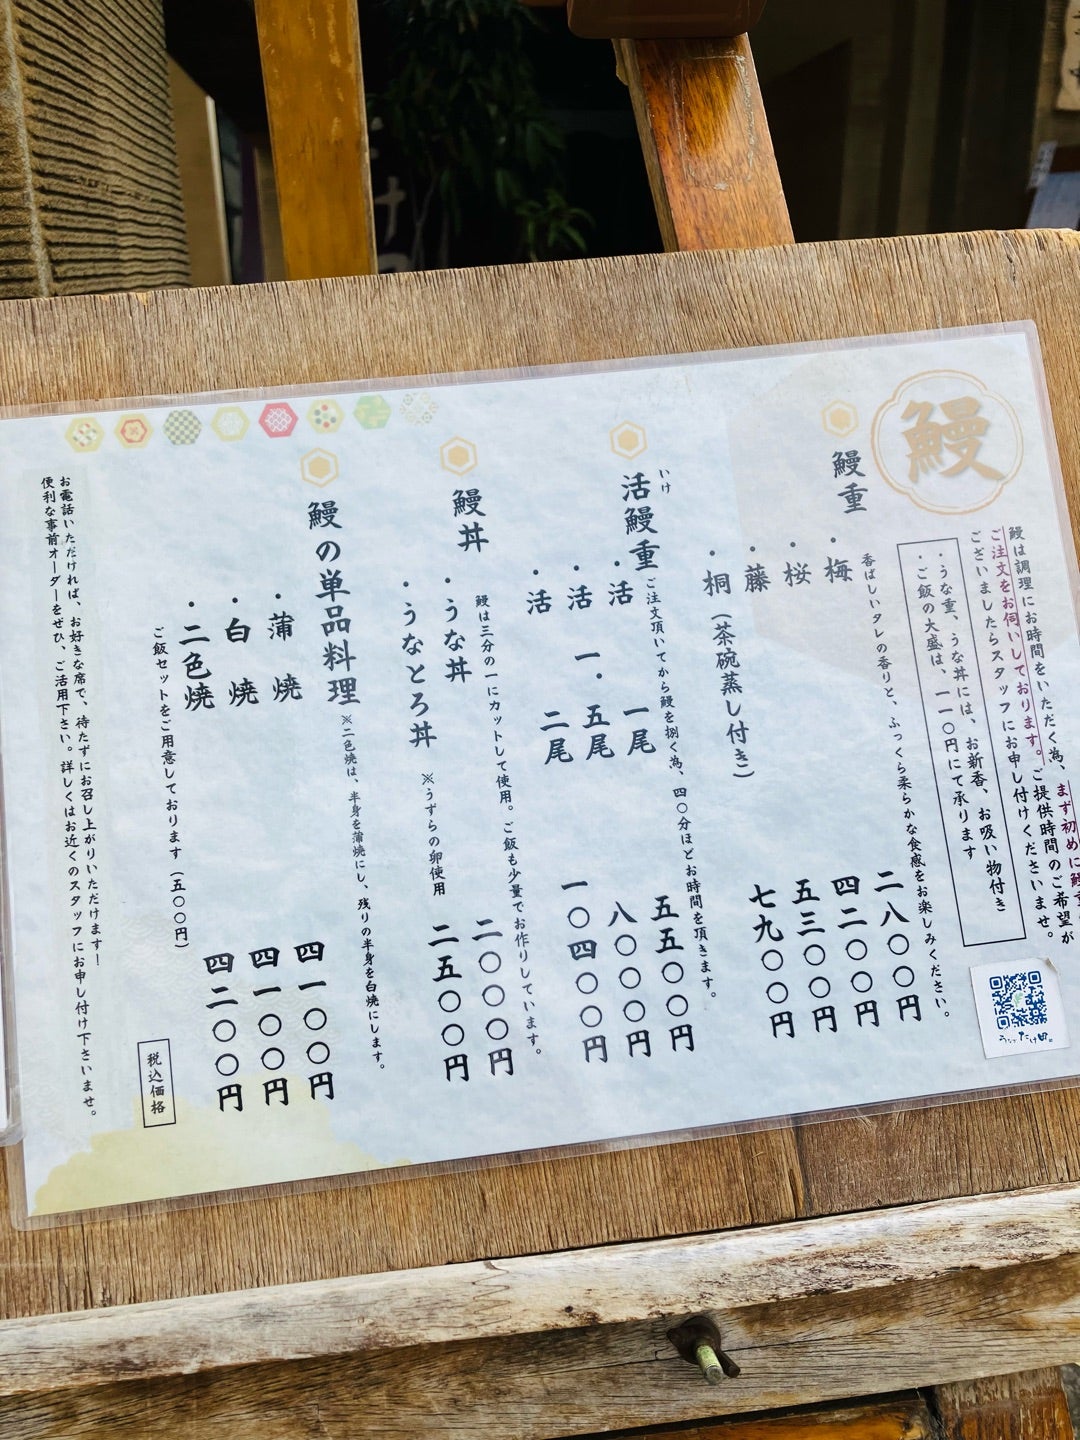 鰻
鰻は調理にお時間をいただく為、まず初めに鰻重
ご注文をお伺いしております。ご提供時間のご希望が
ございましたらスタッフにお申し付けくださいませ。
・うな重、うな丼には、お新香、お吸い物付き
・ご飯の大盛は、一一〇円にて承ります
鰻重
香ばしいタレの香りと、ふっくら柔らかな食感をお楽しみください。
・梅 二八〇〇円
・桜 四二〇〇円
・藤 五三〇〇円
・桐（茶碗蒸し付き） 七九〇〇円
いけ
活鰻重
ご注文頂いてから鰻を捌く為、四〇分ほどお時間を頂きます。
・活 一尾 五五〇〇円
・活 一・五尾 八〇〇〇円
・活 二尾 一〇四〇〇円
鰻丼
鰻は三分の一にカットして使用。ご飯も少量でお作りしています。
・うな丼 二〇〇〇円
・うなとろ丼 ※うずらの卵使用 二五〇〇円
鰻の単品料理
※二色焼は、半身を蒲焼にし、残りの半身を白焼にします。
・蒲焼 四一〇〇円
・白焼 四一〇〇円
・二色焼 四二〇〇円
ご飯セットをご用意しております（五〇〇円）
税込価格
お電話いただければ、お好きな席で、待たずにお召し上がりいただけます！
便利な事前オーダーをぜひ、ご活用下さい。詳しくはお近くのスタッフにお申し付け下さいませ。